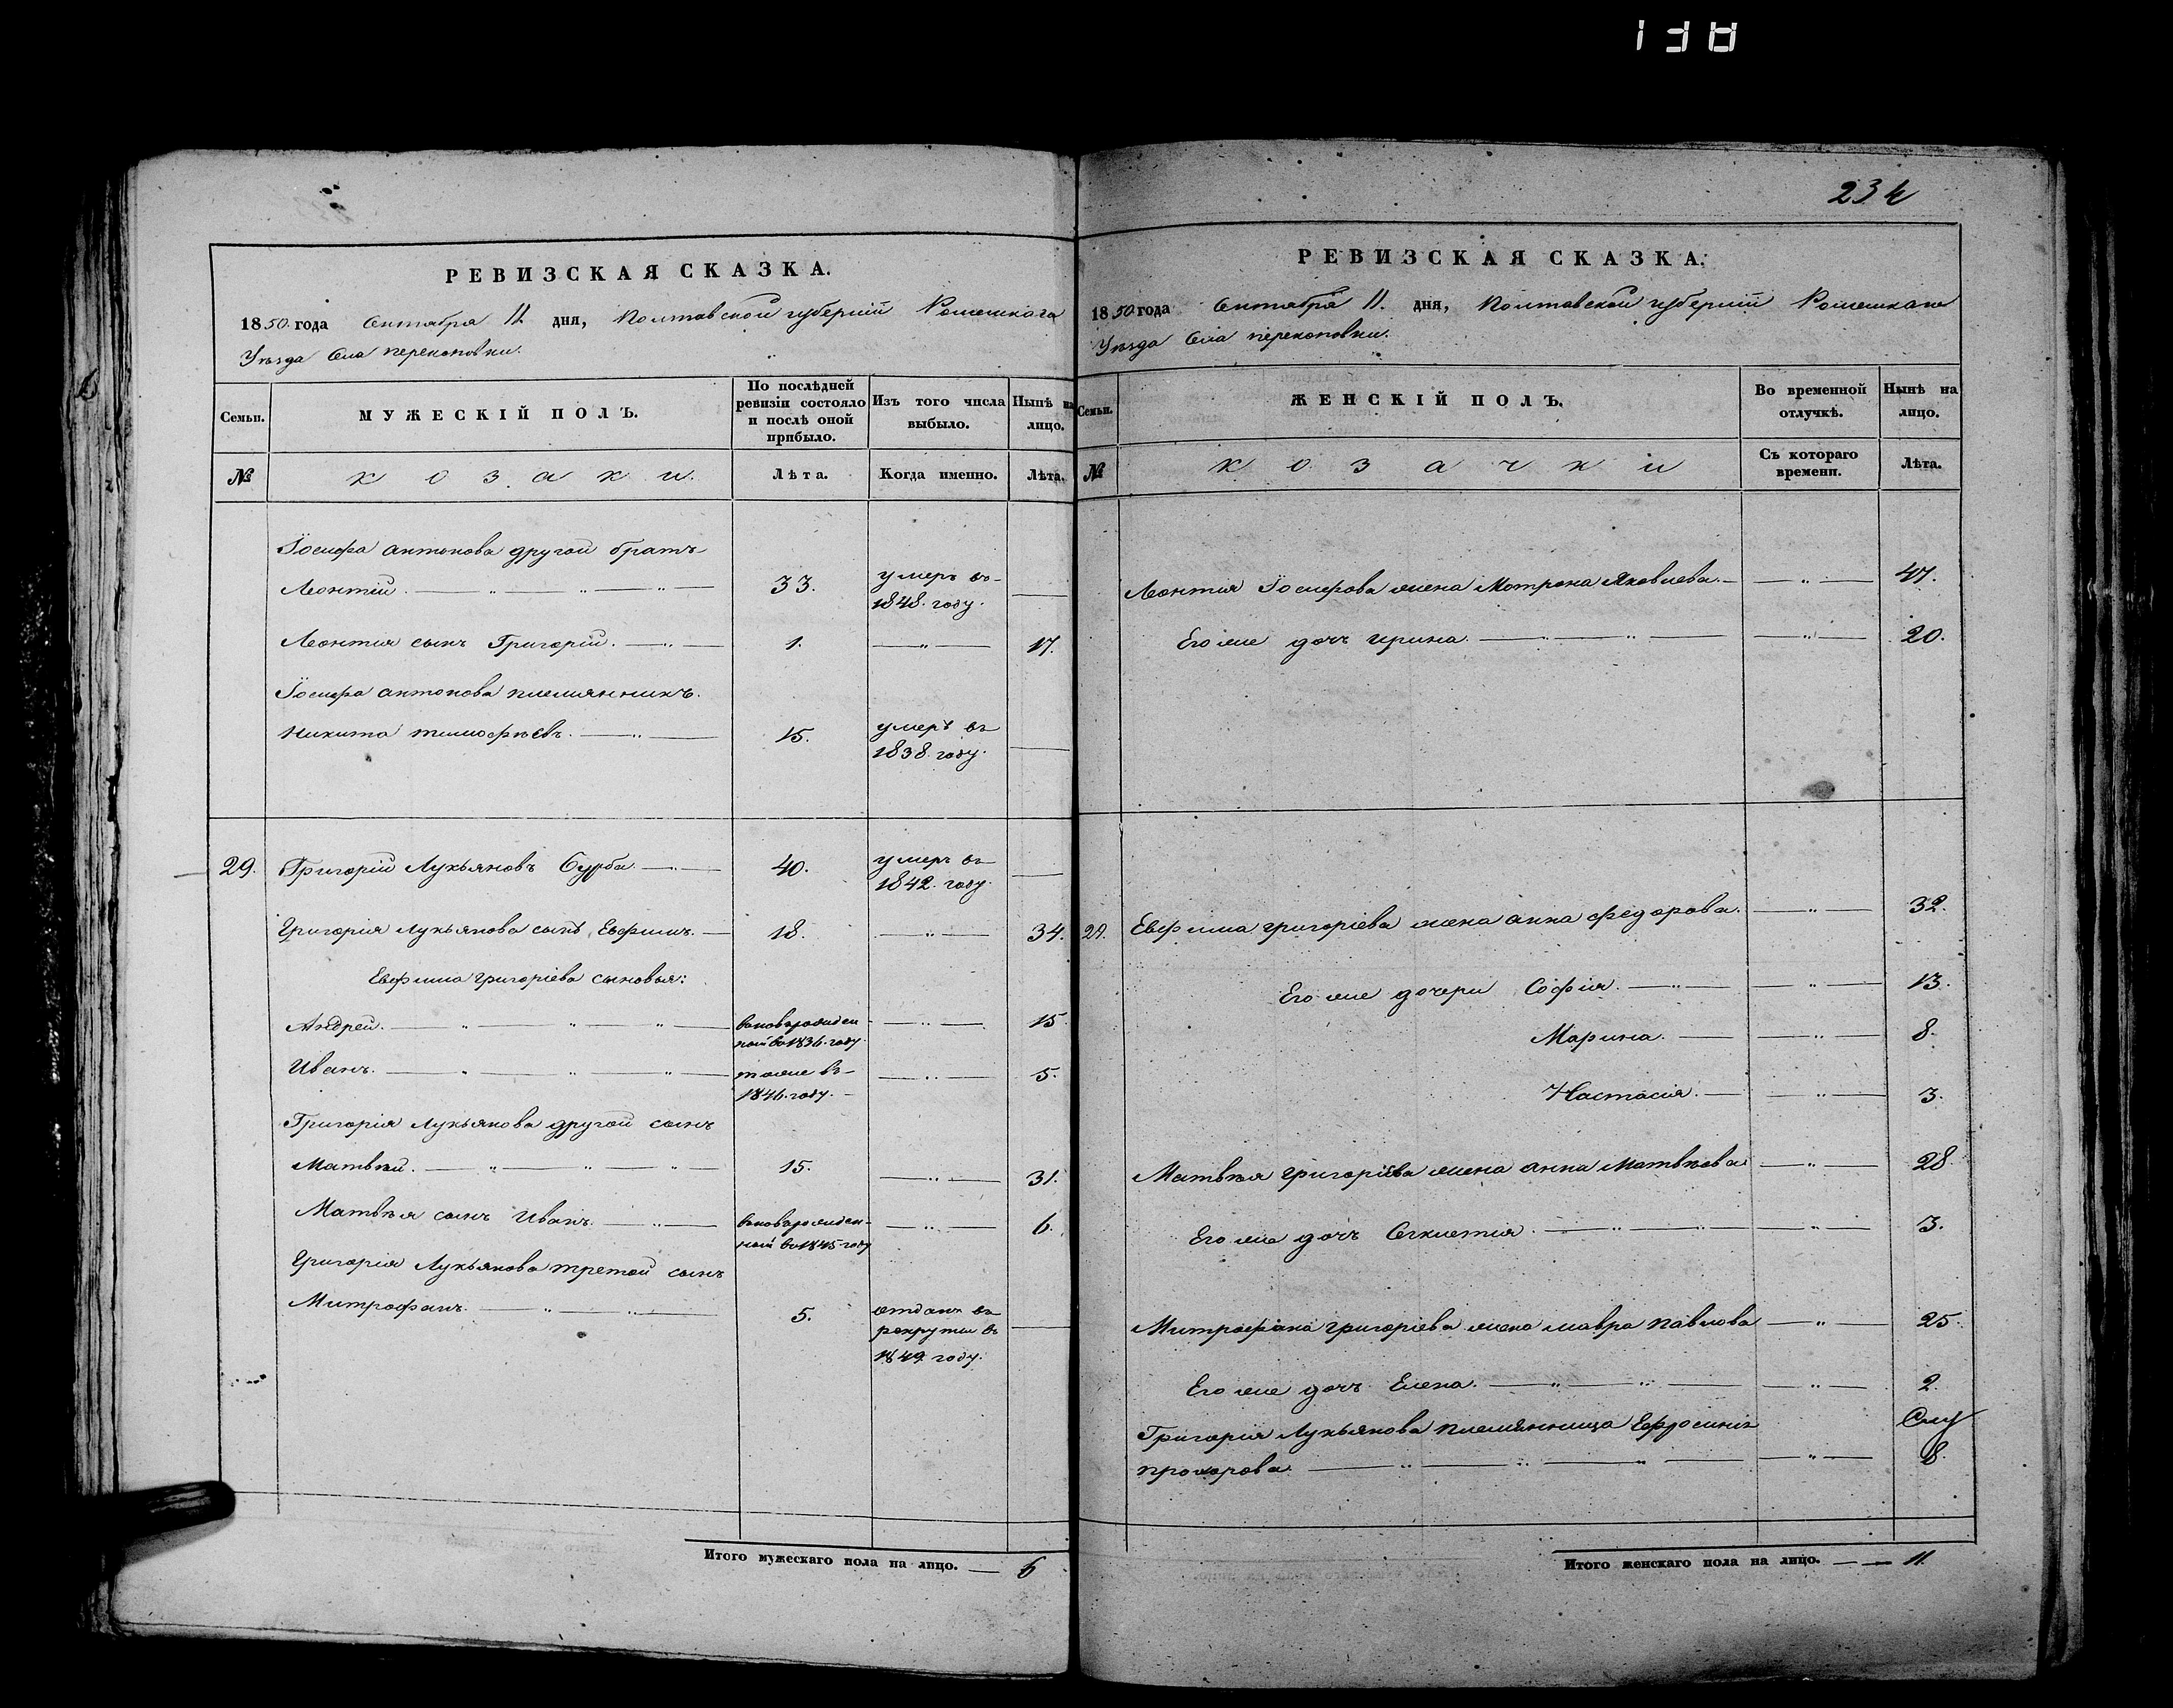 138
234
РЕВИЗСКАЯ СКАЗКА.
1850 года Октября 11 дня, Полтавской губерніи Роменскаго
Уѣзда Села Перекоповки.
Семьи. МУЖЕСКІЙ ПОЛЪ. По послѣдней ревизіи состояло и послѣ оной прибыло. Изъ того числа выбыло. Нынѣ на лицо.
№ козаки. Лѣта. Когда именно. Лѣта.
Іосифа Антонова другой братъ
Леонтій. 33. умеръ въ 1848. году.
Леонтія сынъ Григорій. 1. 17.
Іосифа Антонова племянникъ.
Никита Тимофѣевъ. 15. умеръ въ 1838. году.
29. Григорій Лукьяновъ Бурба. 40. умеръ въ 1842. году.
Григорія Лукьянова сынъ Евфимъ. 18. 34.
Евфима Григоріева сыновья:
Андрей. вновьрожденной во 1836. году. 15.
Иванъ. тоже въ 1846. году. 5.
Григорія Лукьянова другой сынъ
Матвѣй. 15. 31.
Матвѣя сынъ Иванъ. вновьрожденной во 1845 году 6.
Григорія Лукьянова третой сынъ
Митрофанъ. 5. отданъ въ рекруты въ 1849 году.
Итого мужескаго пола на лицо. 6
РЕВИЗСКАЯ СКАЗКА.
1850 года Октября 11. дня, Полтавской губерніи Роменскаго
Уѣзда Села Перекоповки.
Семьи. ЖЕНСКІЙ ПОЛЪ. Во временной отлучкѣ. Нынѣ на лицо.
№ козачки Съ котораго времени. Лѣта.
Леонтія Іосифова жена Мотрона Яковлева. 47.
Его же дочь Ирина. 20.
29. Евфима Григоріева жена Анна Федорова. 32.
Его же дочери Софія. 13.
Марина. 8.
Настасія. 3.
Матвѣя Григоріева жена Анна Матвѣева 28.
Его же дочь 3.
Митрофана Григоріева жена Мавра Павлова 25.
Его же дочь Елена. 2.
Григорія Лукьянова племянница Ефросинія
Прохорова. 8.
Итого женскаго пола на лицо. 11.